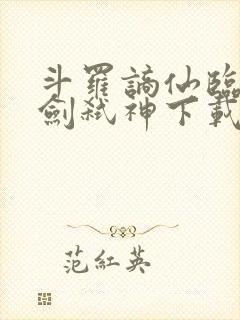 斗羅謫仙臨
劍弒神下載
范紅英